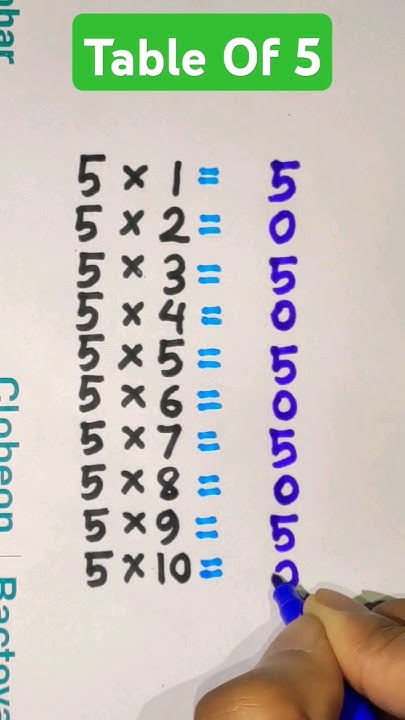 Table Of 5
5 × 1 = 5
5 × 2 = 0
5 × 3 = 5
5 × 4 = 0
5 × 5 = 5
5 × 6 = 0
5 × 7 = 5
5 × 8 = 0
5 × 9 = 5
5 × 10 = 0
Globeon | Bactova